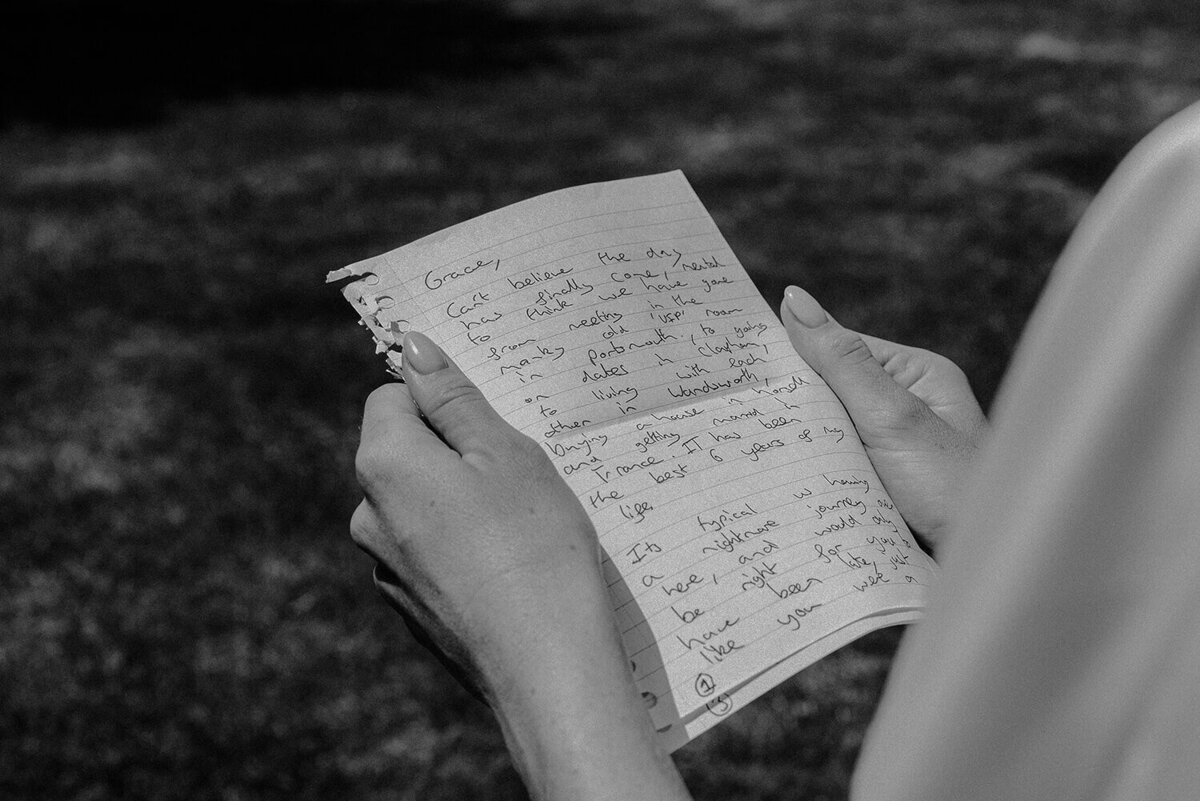 Grace,
Can't believe the day
has finally come, mental
to think we have gone
from meeting in the
manky old 'USP' room
in Portsmouth, to going
on dates in Clapham,
to living with each
other in Wandsworth,
buying a house in Horsell
and getting married in
France. It has been
the best 6 years of my
life.
Its typical w having
a nightmare journey
here, and would only
be right for you to
have been late, just
like you were
1
3